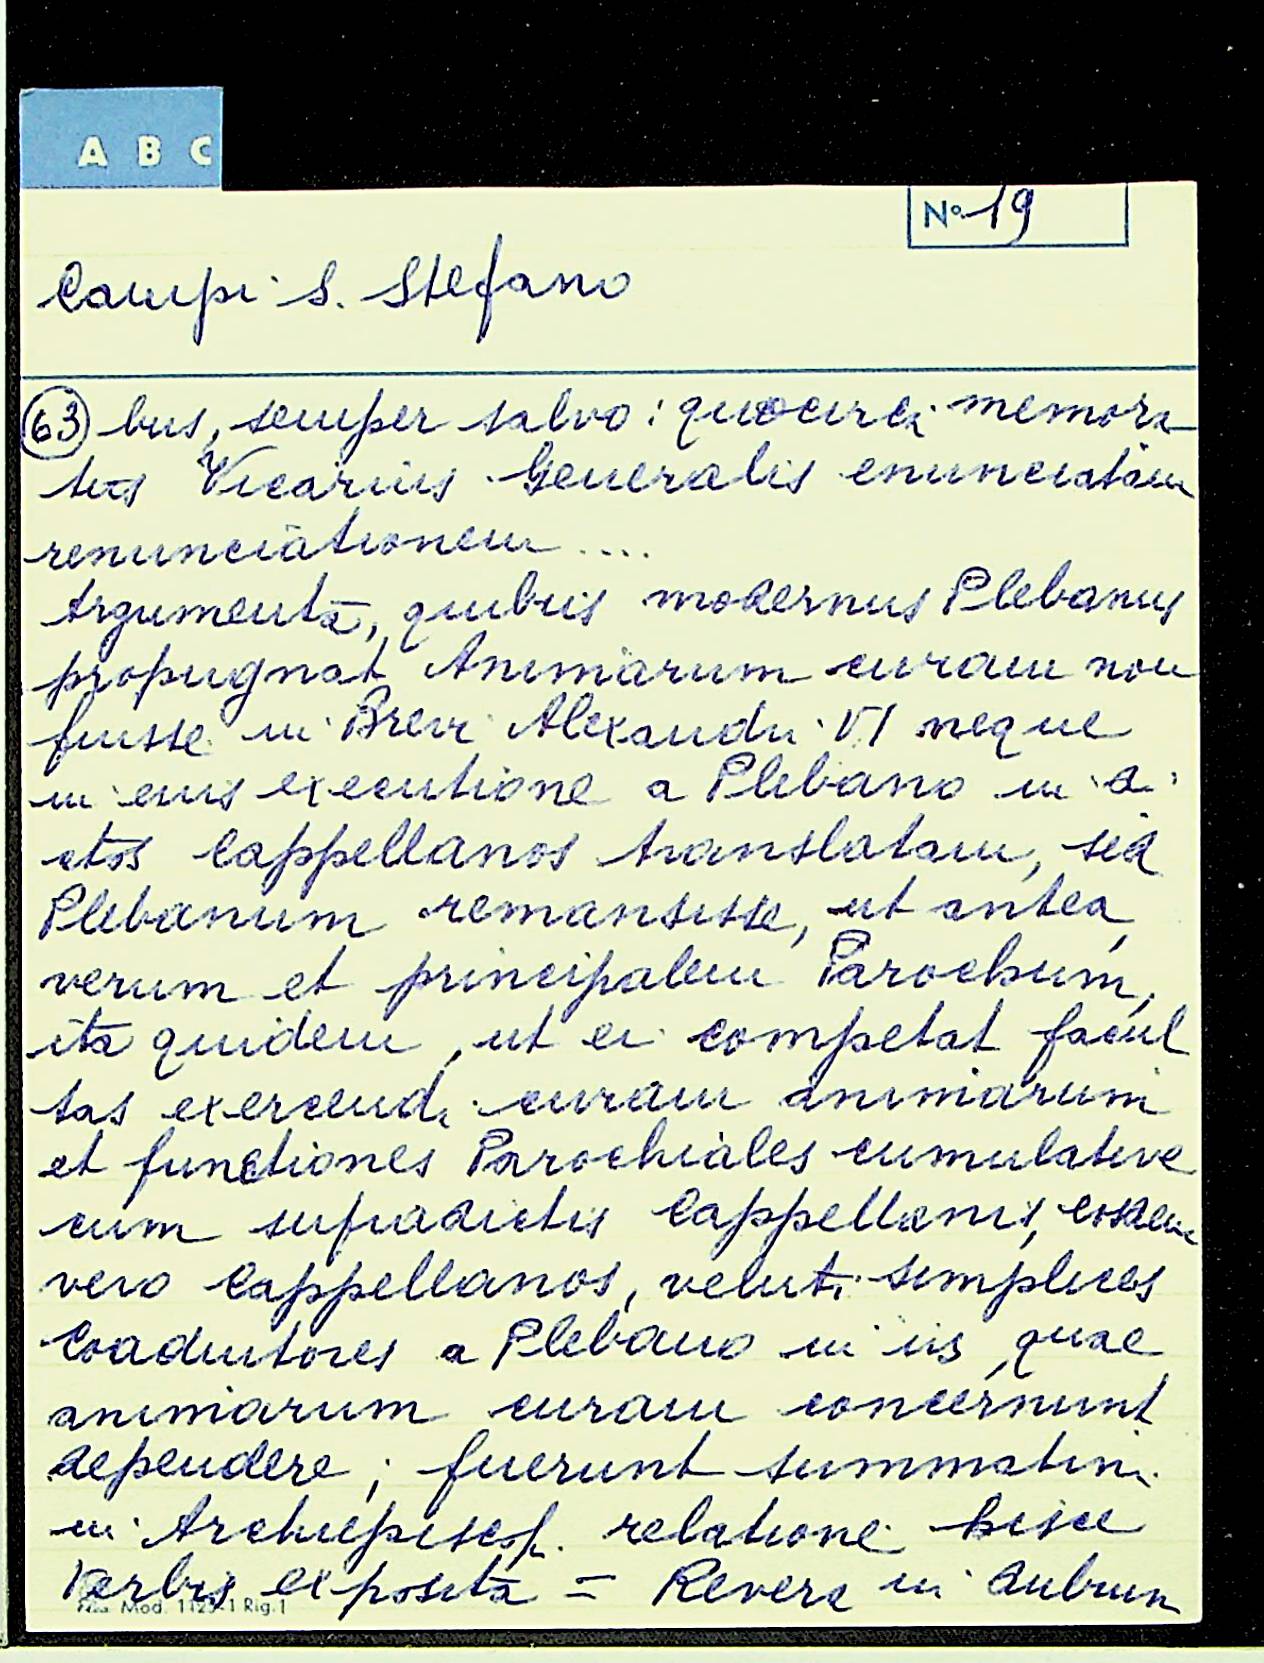 A B C
N° 19
Campi S. Stefano
63 bus, semper salvo: quocirca memora
tus Vicarius Generalis enunciatam
renunciationem ....
Argumenta, quibus modernus Plebanus
propugnat Animarum curam non
fuisse in Brevi Alexandri VI neque
in eius executione a Plebano in di
ctos Cappellanos translatam, sed
Plebanum remansisse, ut antea,
verum et principalem Parochum,
ita quidem, ut ei competat facul
tas exercendi curam animarum
et functiones Parochiales cumulative
cum supradictis Cappellanis, eosdem
vero Cappellanos, veluti simplices
Coadiutores a Plebano in iis, quae
animarum curam concernunt
dependere; fuerunt summatim
in Archiepiscop. relatione hisce
verbis exposita = Revera in dubium
Mod. 1125-1 Rig.1